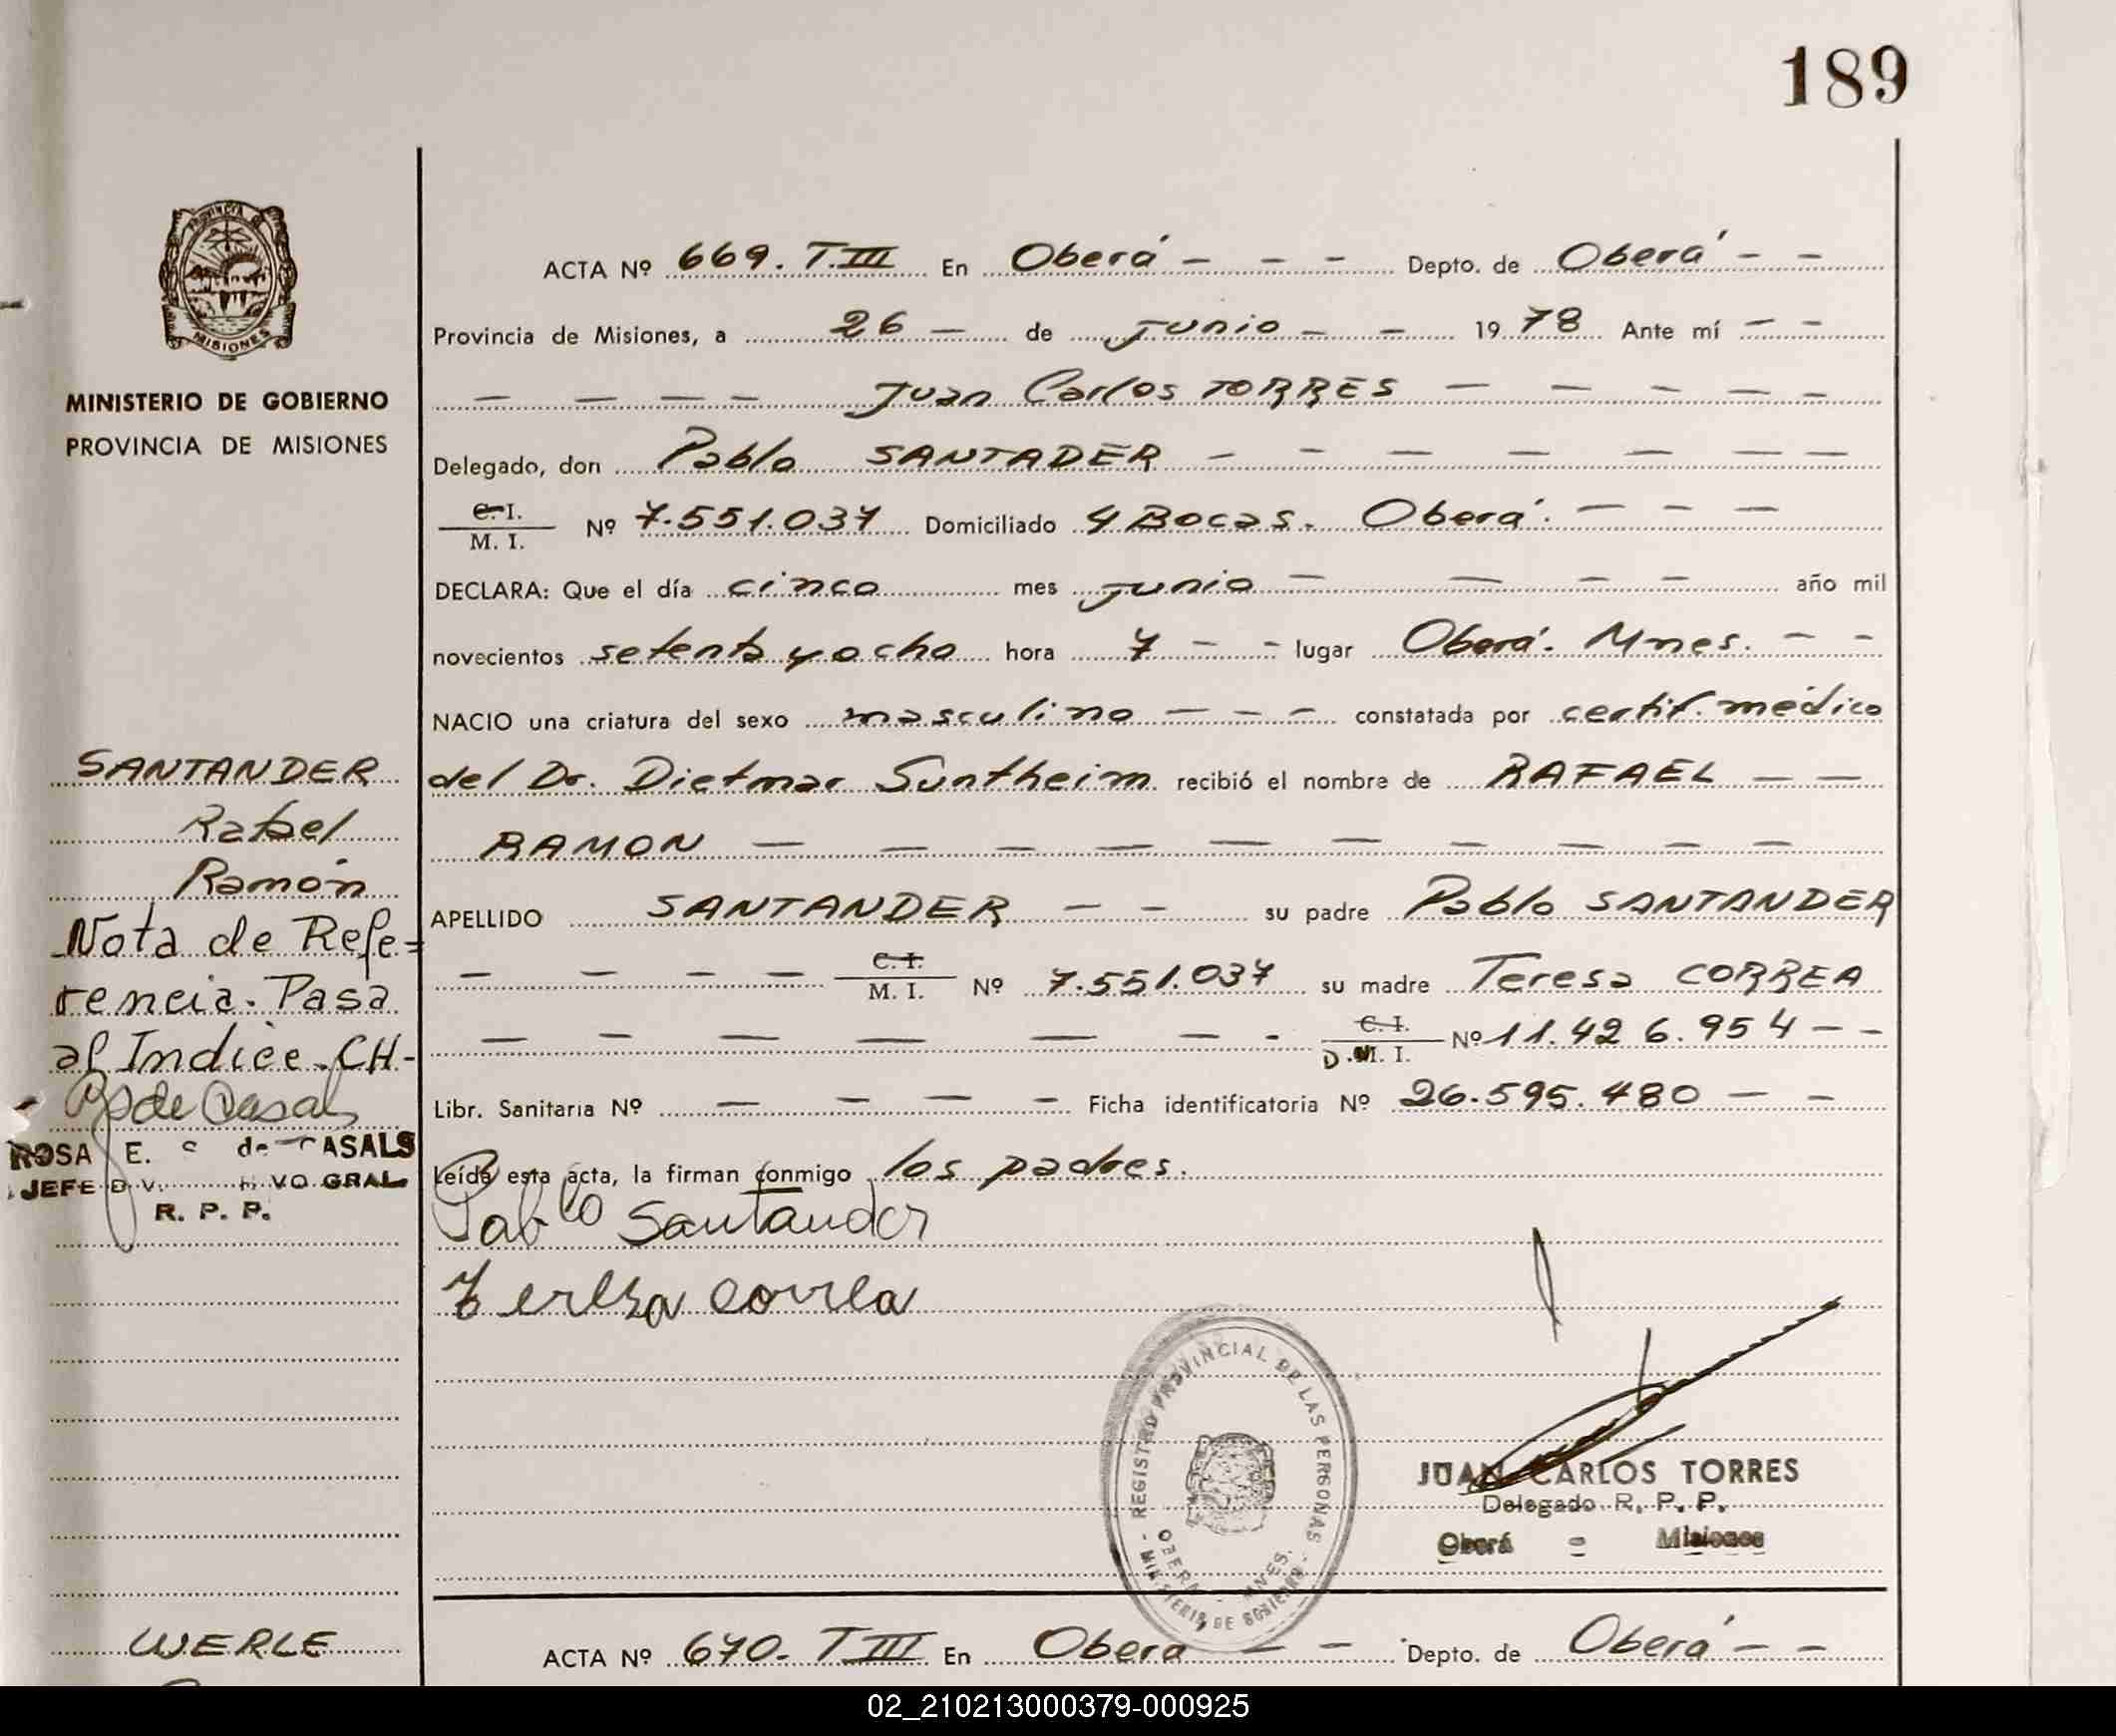 189
PROVINCIA DE
MISIONES
MINISTERIO DE GOBIERNO
PROVINCIA DE MISIONES
SANTANDER
Rafael
Ramón
Nota de Refe=
rencia. Pasa
al Indice. CH-
de Casals
ROSA E. de CASALS
JEFE DIV. VO GRAL.
R. P. P.
ACTA Nº 669. T.III En Oberá - - - Depto. de Oberá - -
Provincia de Misiones, a 26 - de Junio - - 1978 Ante mí - -
- - - - Juan Carlos TORRES - - - - -
Delegado, don Pablo SANTADER - - - - - - -
C. I.
M. I. Nº 7.551.037 Domiciliado 4 Bocas. Oberá. - - -
DECLARA: Que el día cinco mes junio - - - - año mil
novecientos setenta y ocho hora 7 - - lugar Oberá. Mnes. - -
NACIO una criatura del sexo masculino - - - constatada por certif. médico
del Dr. Dietmar Suntheim recibió el nombre de RAFAEL - -
RAMON - - - - - - - - -
APELLIDO SANTANDER - - su padre Pablo SANTANDER
- - - - C. I.
M. I. Nº 7.551.037 su madre Teresa CORREA
- - - - - - - C. I.
D.M. I. Nº 11.426.954 - -
Libr. Sanitaria Nº - - - - Ficha identificatoria Nº 26.595.480 - -
Leída esta acta, la firman conmigo los padres.
Pablo Santander
Teresa correa
REGISTRO PROVINCIAL DE LAS PERSONAS
OBERA - MNES.
- MINISTERIO DE GOBIERNO -
JUAN CARLOS TORRES
Delegado R. P. P.
Oberá - Misiones
WERLE
ACTA Nº 670. T III En Obera - - Depto. de Oberá - -
02_210213000379-000925